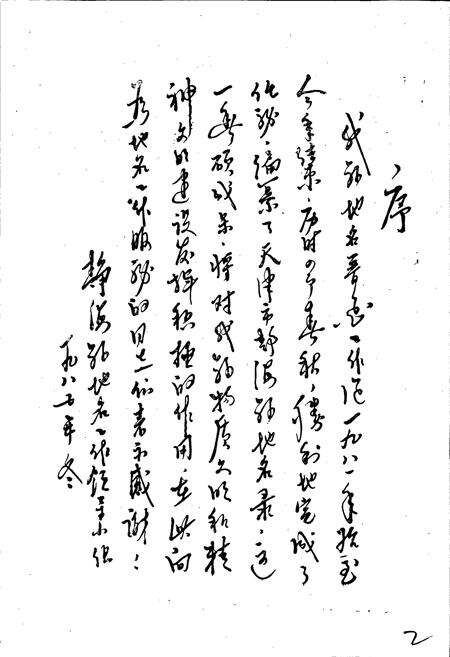 序
我县地名普查工作从一九八一年始至
今年结束，历时四个春秋，胜利地完成了
任务，编纂了天津市静海县地名录，这
一丰硕成果，将对我县物质文明和精
神文明建设发挥积极的作用，在此向
为地名工作服务的同志们表示感谢！
静海县地名工作领导小组
一九八五年冬
2